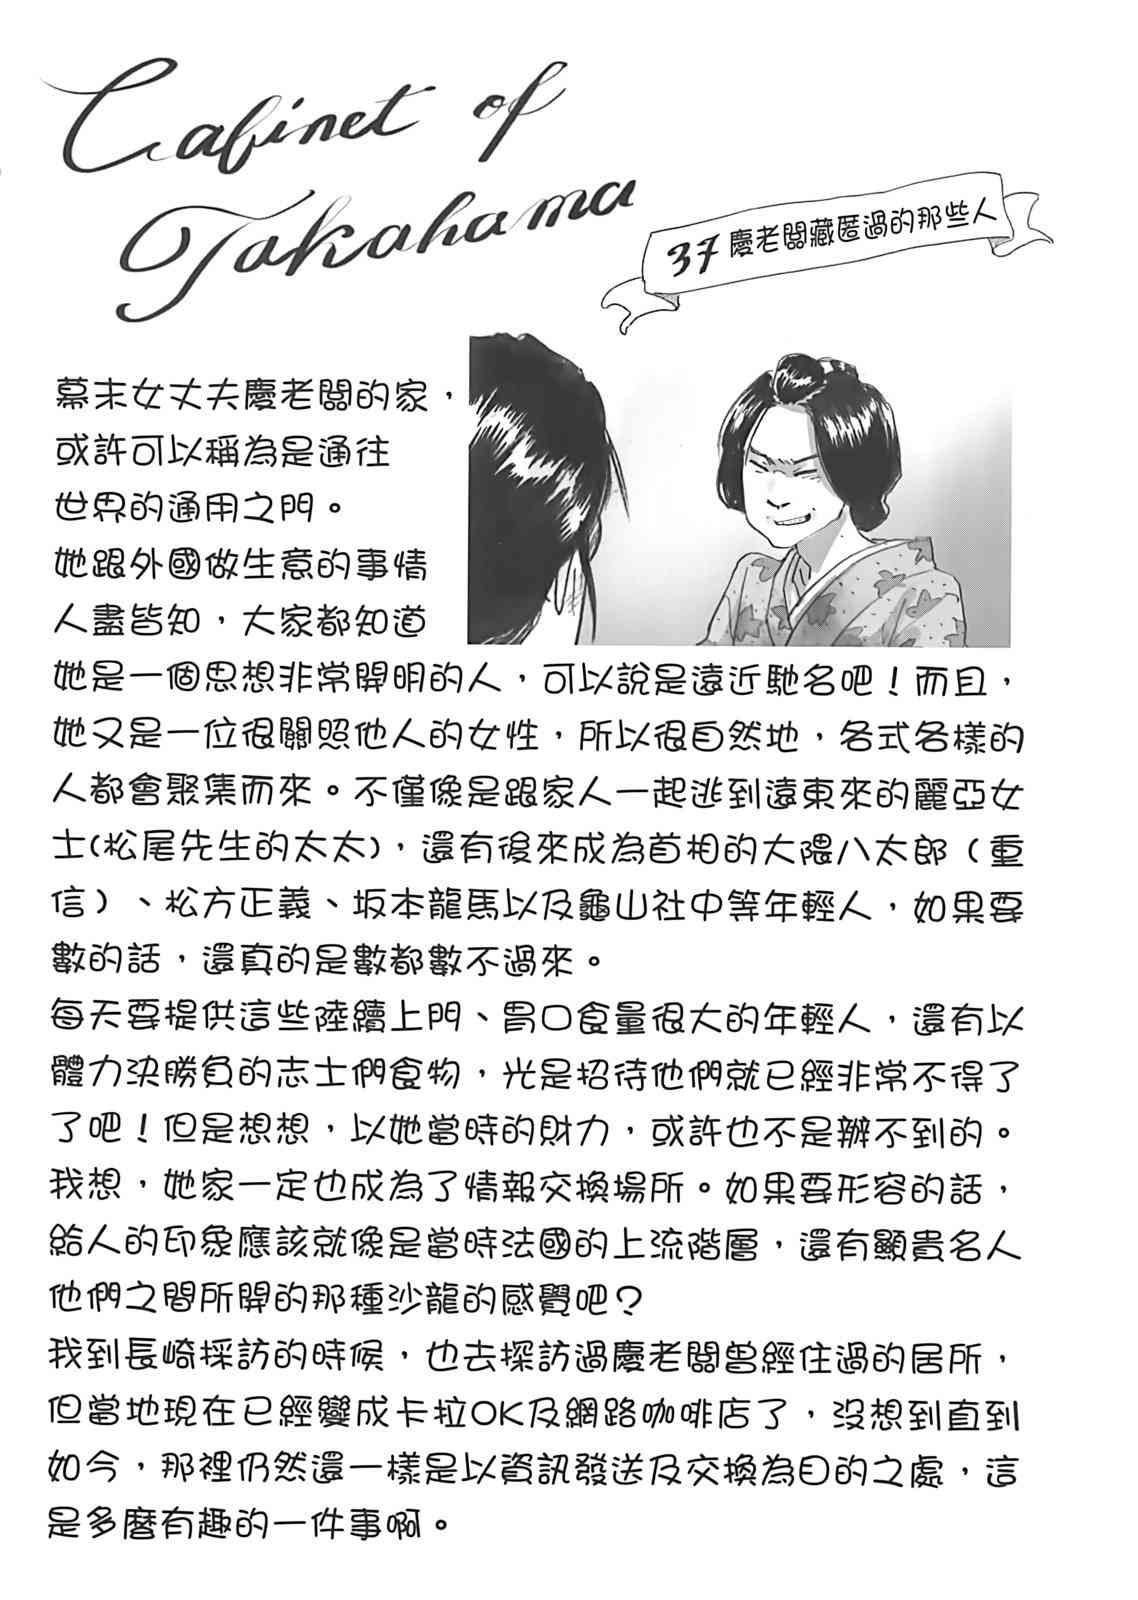 Cabinet of
Takahama
37 慶老闆藏匿過的那些人
幕末女丈夫慶老闆的家，
或許可以稱為是通往
世界的通用之門。
她跟外國做生意的事情
人盡皆知，大家都知道
她是一個思想非常開明的人，可以說是遠近馳名吧！而且，
她又是一位很關照他人的女性，所以很自然地，各式各樣的
人都會聚集而來。不僅像是跟家人一起逃到遠東來的麗亞女
士(松尾先生的太太)，還有後來成為首相的大隈八太郎（重
信）、松方正義、坂本龍馬以及龜山社中等年輕人，如果要
數的話，還真的是數都數不過來。
每天要提供這些陸續上門、胃口食量很大的年輕人，還有以
體力決勝負的志士們食物，光是招待他們就已經非常不得了
了吧！但是想想，以她當時的財力，或許也不是辦不到的。
我想，她家一定也成為了情報交換場所。如果要形容的話，
給人的印象應該就像是當時法國的上流階層，還有顯貴名人
他們之間所開的那種沙龍的感覺吧？
我到長崎採訪的時候，也去探訪過慶老闆曾經住過的居所，
但當地現在已經變成卡拉OK及網路咖啡店了，沒想到直到
如今，那裡仍然還一樣是以資訊發送及交換為目的之處，這
是多麼有趣的一件事啊。